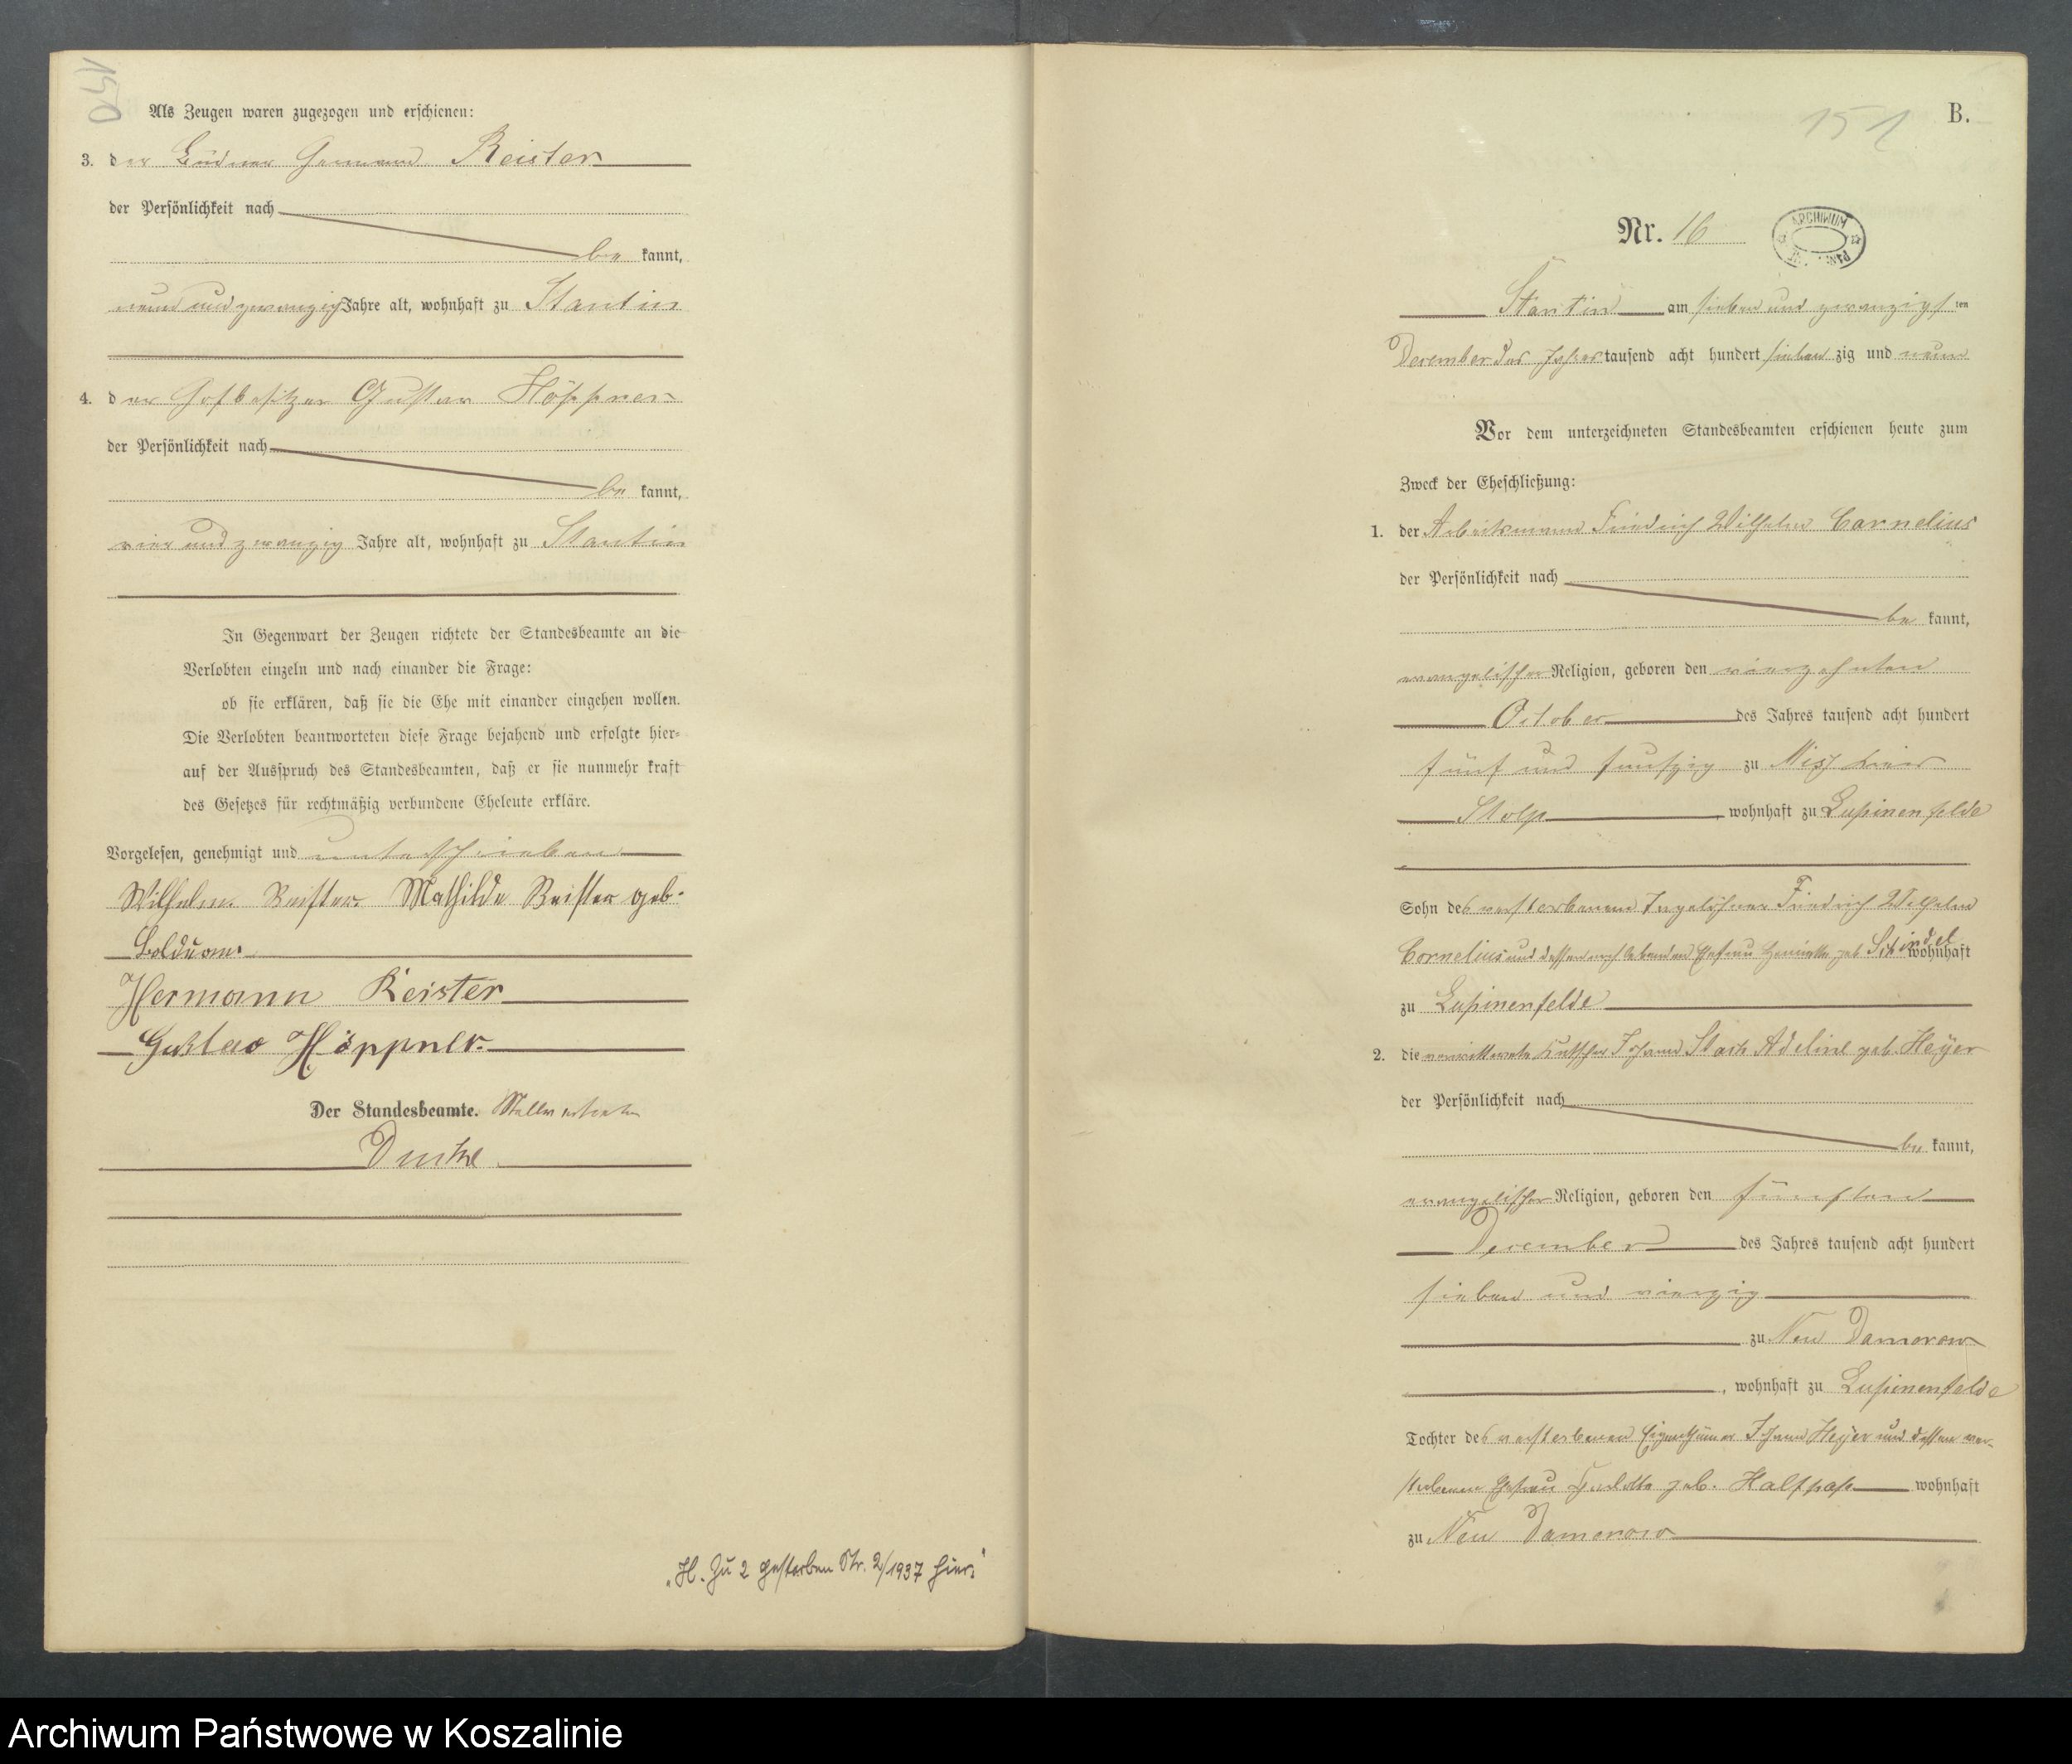 150
Als Zeugen waren zugezogen und erschienen:
3. der Büdner Hermann Reister
der Persönlichkeit nach
be kannt,
neun und zwanzig Jahre alt, wohnhaft zu Stantin
4. der Hofbesitzer Gustav Höppner
der Persönlichkeit nach
be kannt,
vier und zwanzig Jahre alt, wohnhaft zu Stantin
In Gegenwart der Zeugen richtete der Standesbeamte an die
Verlobten einzeln und nach einander die Frage:
ob sie erklären, daß sie die Ehe mit einander eingehen wollen.
Die Verlobten beantworteten diese Frage bejahend und erfolgte hier-
auf der Ausspruch des Standesbeamten, daß er sie nunmehr kraft
des Gesetzes für rechtmäßig verbundene Eheleute erkläre.
Vorgelesen, genehmigt und unterschrieben
Wilhelm Reister Mathilde Reister geb.
Bolduan.
Hermann Reister
Gustav Höppner.
Der Standesbeamte. Stellvertreter
„H. Zu 2 gestorben Nr. 2/1937 hier."
151
B.
Nr. 16
ARCHIWUM
Stantin am sieben und zwanzigsten
December des Jahres tausend acht hundert sieben zig und neun
Vor dem unterzeichneten Standesbeamten erschienen heute zum
Zweck der Eheschließung:
1. der Arbeitsmann Friedrich Wilhelm Cornelius
der Persönlichkeit nach
be kannt,
evangelischer Religion, geboren den vierzehnten
October des Jahres tausend acht hundert
fünf und funfzig zu Kreis
Stolp, wohnhaft zu Lupinenfelde
Sohn des verstorbenen Tagelöhner Friedrich Wilhelm
Cornelius und dessen noch lebenden Ehefrau Henriette geb. Schindel wohnhaft
zu Lupinenfelde
2. die verwittwete Kutscher Johann Stach Adeline geb. Heyer
der Persönlichkeit nach
be kannt,
evangelischer Religion, geboren den fünften
December des Jahres tausend acht hundert
sieben und vierzig
zu Neu Damerow
, wohnhaft zu Lupinenfelde
Tochter des verstorbenen Eigenthümer Johann Heyer und dessen ver-
storbenen Ehefrau geb. Halfpap wohnhaft
zu Neu Damerow
Archiwum Państwowe w Koszalinie